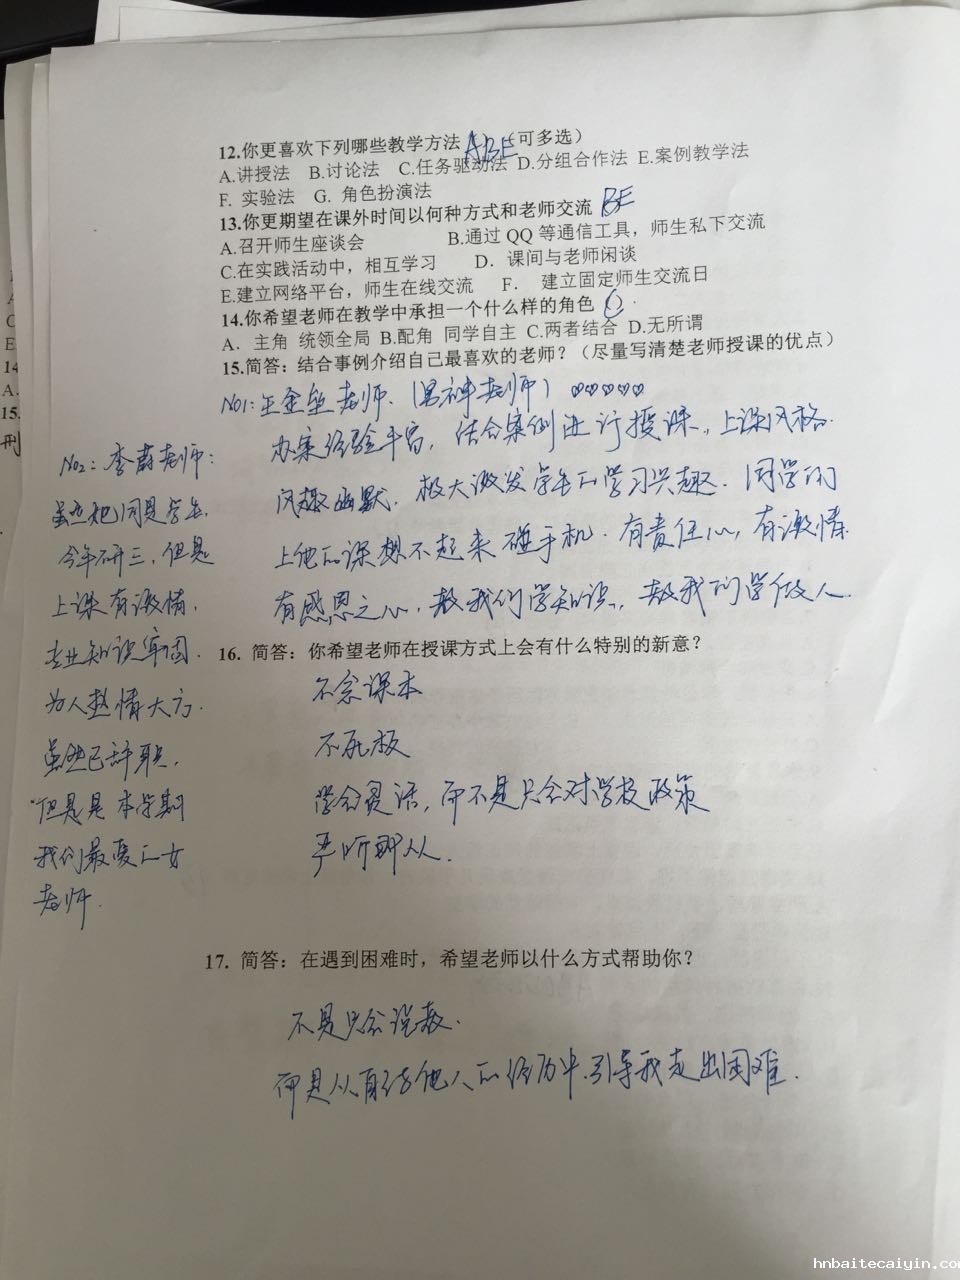 12.你更喜欢下列哪些教学方法 ABE (可多选)
A.讲授法 B.讨论法 C.任务驱动法 D.分组合作法 E.案例教学法
F. 实验法 G. 角色扮演法
13.你更期望在课外时间以何种方式和老师交流 BE
A.召开师生座谈会 B.通过 QQ 等通信工具，师生私下交流
C.在实践活动中，相互学习 D．课间与老师闲谈
E.建立网络平台，师生在线交流 F． 建立固定师生交流日
14.你希望老师在教学中承担一个什么样的角色（C）
A．主角 统领全局 B.配角 同学自主 C.两者结合 D.无所谓
15.简答：结合事例介绍自己最喜欢的老师？（尽量写清楚老师授课的优点）
No1: 王金垒老师.（男神老师）♡♡♡♡♡
办案经验丰富，结合案例进行授课，上课风格
风趣幽默，极大激发学生的学习兴趣．同学们
上他的课想不起来碰手机．有责任心，有激情
有感恩之心，教我们学知识，教我们学做人．
No2：李蔚老师：
虽然她同是学生，
今年研三，但是
上课有激情，
专业知识牢固．
为人热情大方．
虽然已辞职，
但是是本学期
我们最爱的女
老师．
16. 简答：你希望老师在授课方式上会有什么特别的新意？
不念课本
不死板
学会灵活，而不是只会对学校政策
严听即从．
17. 简答：在遇到困难时，希望老师以什么方式帮助你？
不是只会说教．
而是从自己或他人的经历中引导我走出困难．
14
A.
15.
刑
hnbaitecaiyin.com